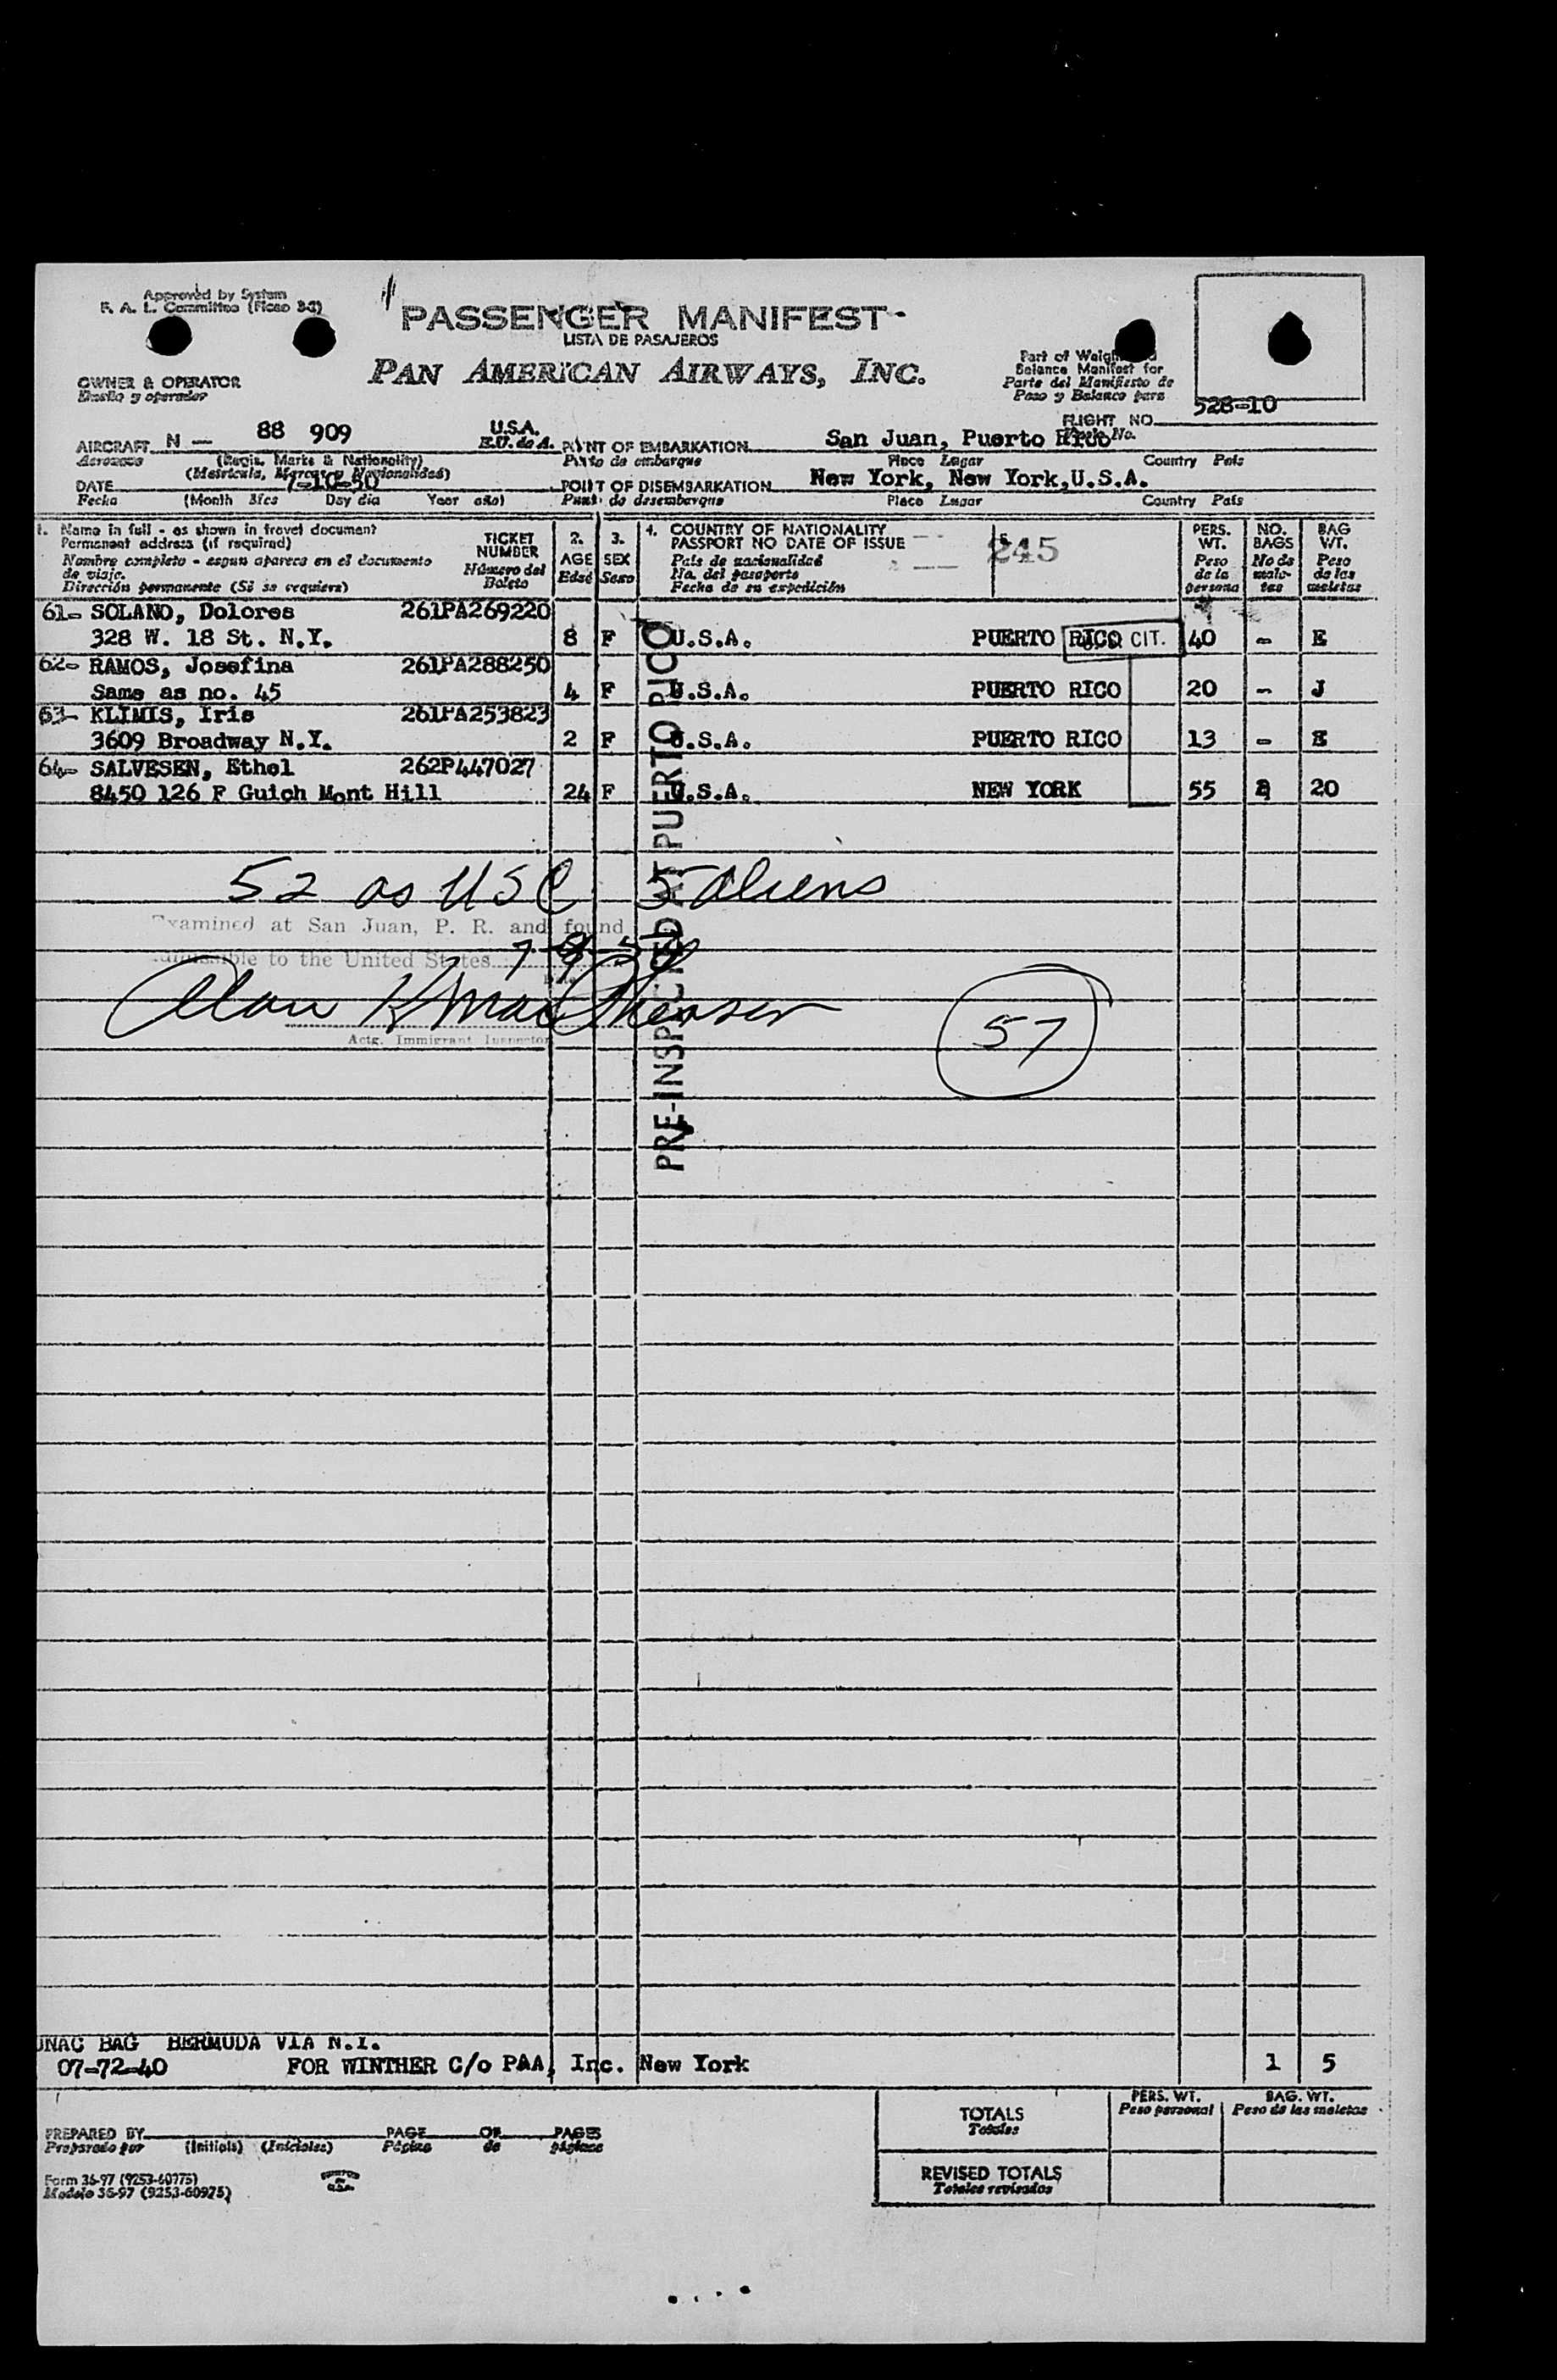 Approved by System
F. A. L. Committee (Ficao 3-2)
PASSENGER MANIFEST
LISTA DE PASAJEROS
PAN AMERICAN AIRWAYS, INC.
OWNER & OPERATOR
Dueño y operador
Part of Weight
Balance Manifest for
Parte del Manifiesto de
Peso y Balance para
FLIGHT NO. 528-10
AIRCRAFT N — 88 909 U.S.A.
Aeronave (Regis. Marks & Nationality) E.U. de A.
(Matrícula, Marcas y Nacionalidad)
POINT OF EMBARKATION San Juan, Puerto Rico
Punto de embarque Place Lugar Country País
DATE 7-10-50
Fecha (Month Mes Day día Year año)
POINT OF DISEMBARKATION New York, New York, U.S.A.
Punto de desembarque Place Lugar Country País
1. Name in full - as shown in travel document
Permanent address (if required)
Nombre completo - segun aparece en el documento
de viaje.
Dirección permanente (Si se requiere)
TICKET
NUMBER
Número del
Boleto
2.
AGE
Edad
3.
SEX
Sexo
4. COUNTRY OF NATIONALITY
PASSPORT NO DATE OF ISSUE
País de nacionalidad
No. del pasaporte
Fecha de su expedición
245
PERS.
WT.
Peso
de la
persona
NO.
BAGS
No de
male-
tas
BAG
WT.
Peso
de las
maletas
61- SOLANO, Dolores 261PA269220
328 W. 18 St. N.Y. 8 F U.S.A. PUERTO RICO CIT. 40 - E
62- RAMOS, Josefina 261PA288250
Same as no. 45 4 F U.S.A. PUERTO RICO 20 - J
63- KLIMIS, Iris 261PA253823
3609 Broadway N.Y. 2 F U.S.A. PUERTO RICO 13 - E
64- SALVESEN, Ethel 262P447027
8450 126 F Guich Mont Hill 24 F U.S.A. NEW YORK 55 2 20
PRE-INSPECTED AT PUERTO RICO
52 as USC 5 aliens
Examined at San Juan, P. R. and found
admissible to the United States
Alan K
57
Actg. Immigrant Inspector
UNAC BAG BERMUDA VIA N.Y.
07-72-40 FOR WINTHER C/o PAA, Inc. New York 1 5
PREPARED BY PAGE OF PAGES
Preparado por (Initials) (Iniciales) Página de páginas
TOTALS
Totales
PERS. WT.
Peso personal
BAG. WT.
Peso de las maletas
REVISED TOTALS
Totales revisados
Form 36-97 (9253-60975)
Modelo 36-97 (9253-60975)